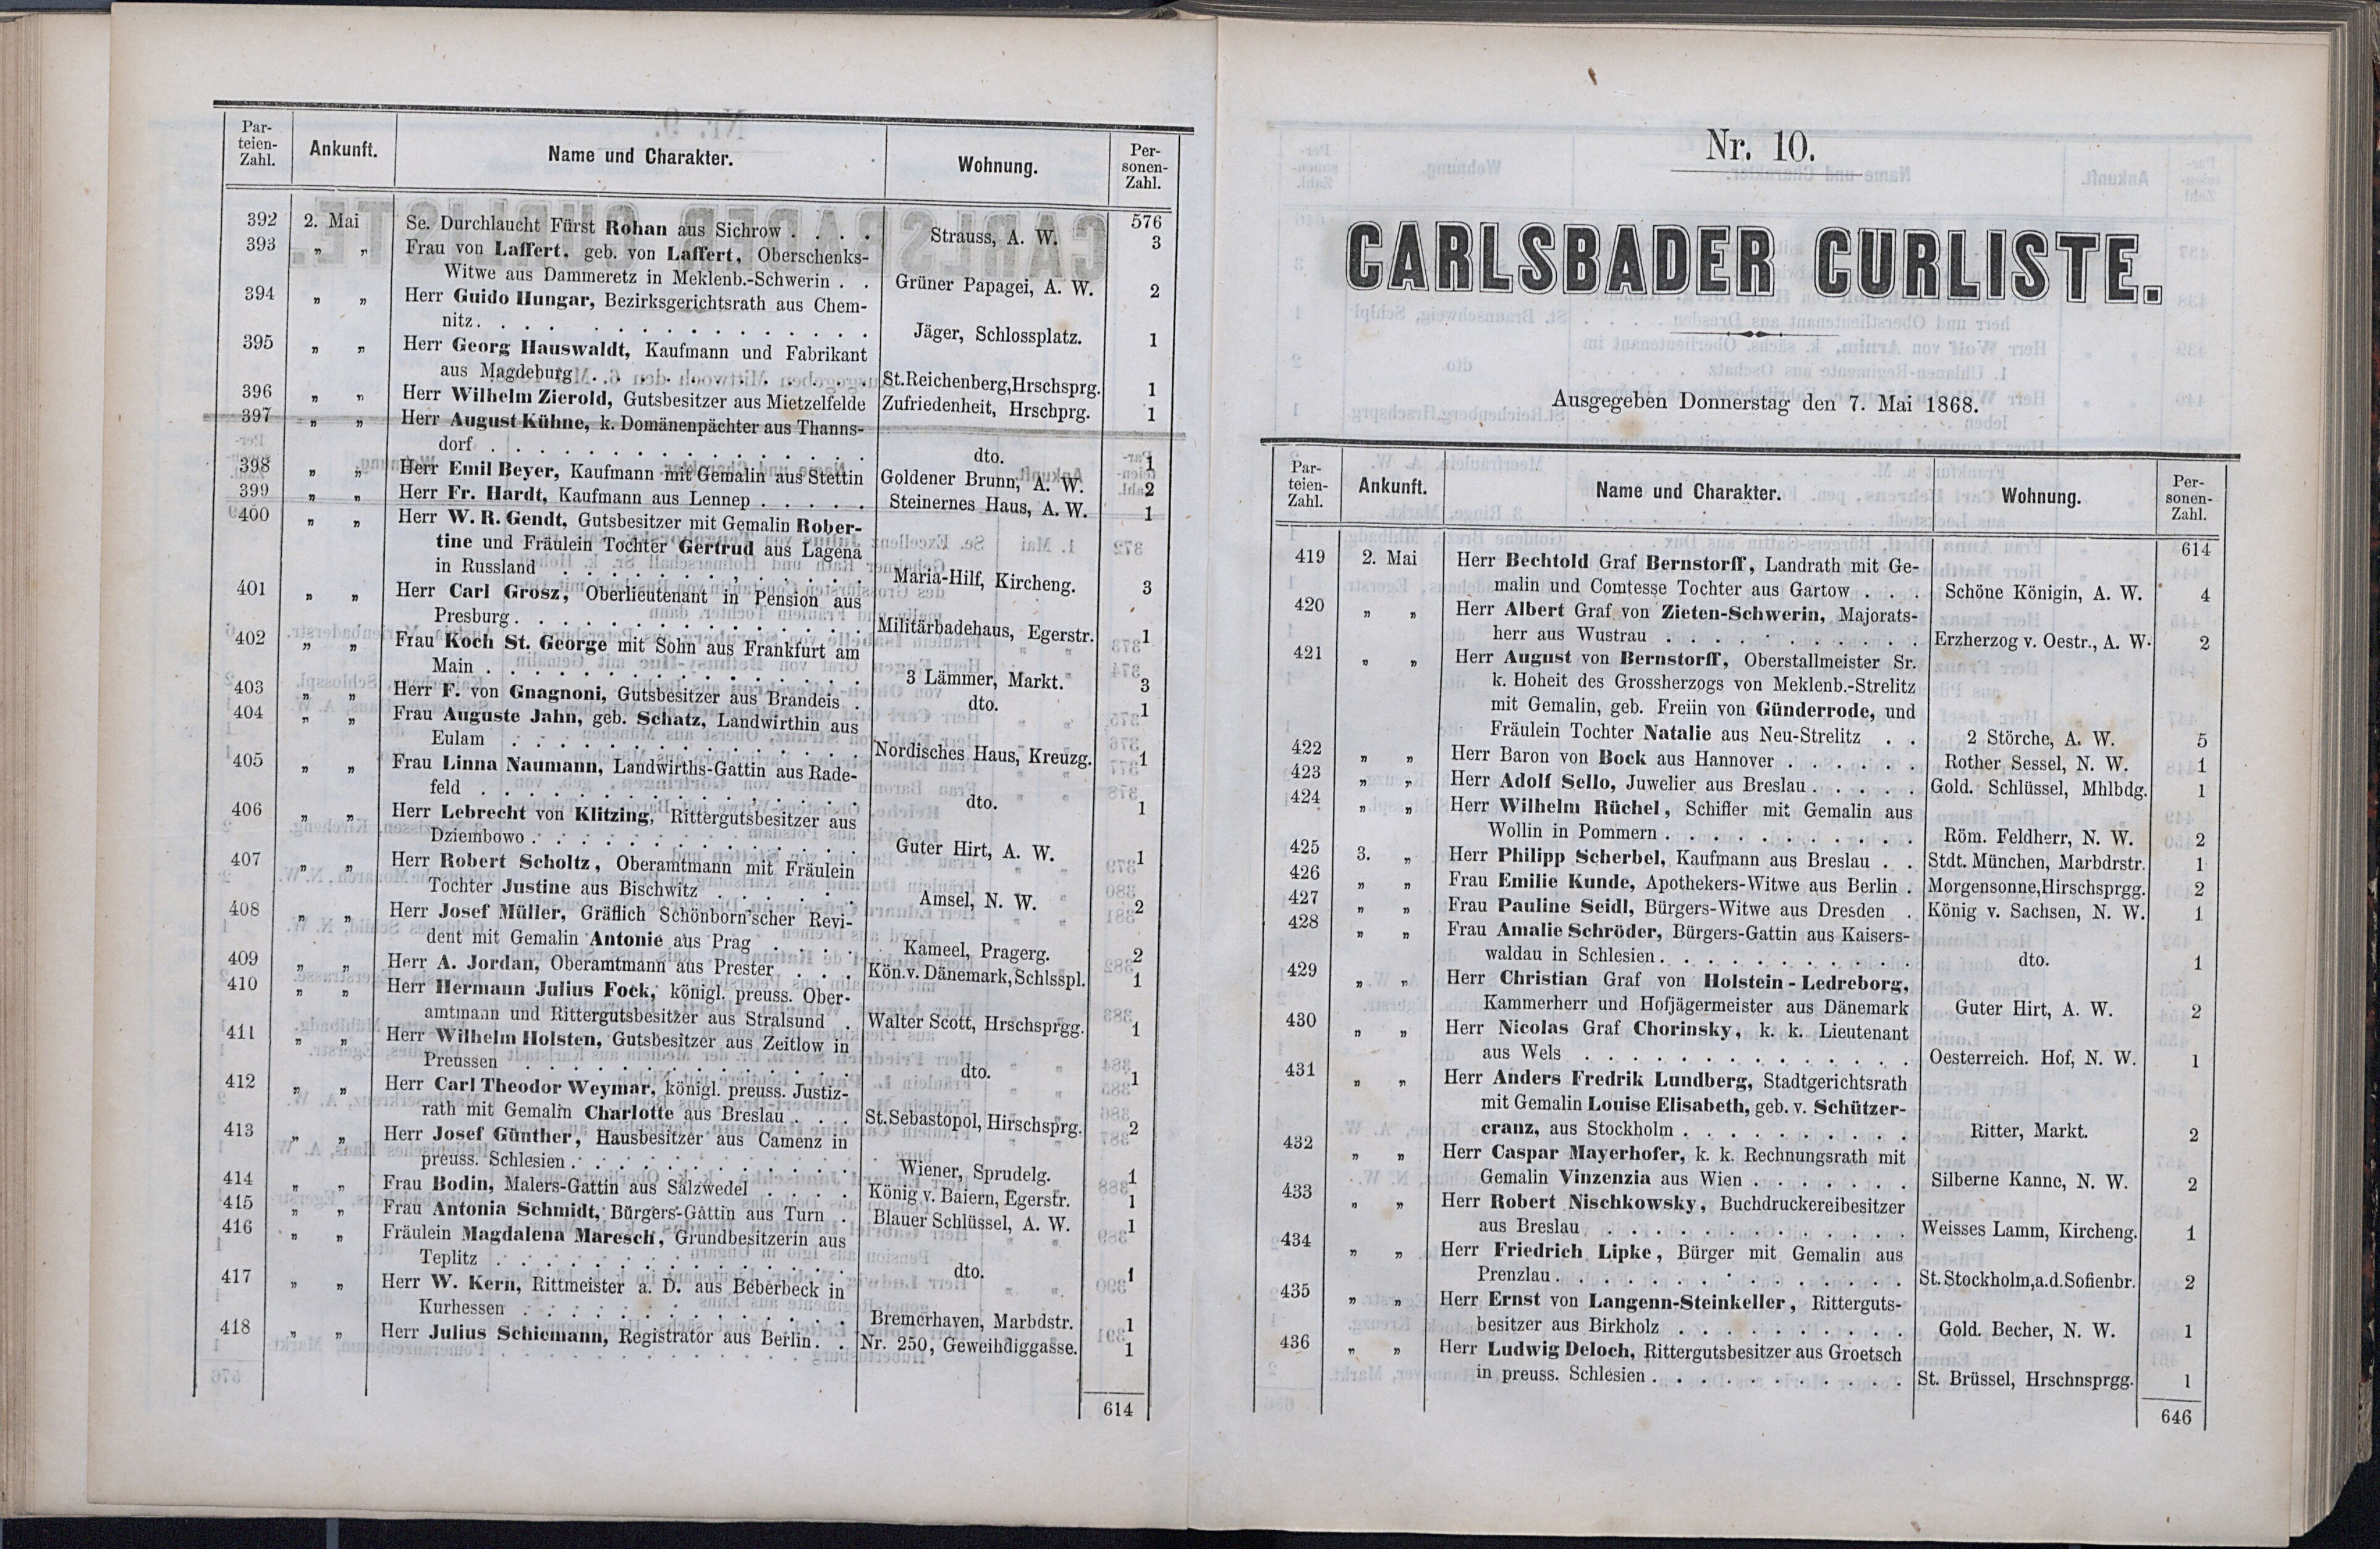 Par-teien-Zahl. Ankunft. Name und Charakter. Wohnung. Per-sonen-Zahl.
576
392 2. Mai Se. Durchlaucht Fürst Rohan aus Sichrow . . . . Strauss, A. W. 3
393 „ „ Frau von Laffert, geb. von Laffert, Oberschenks-
Witwe aus Dammeretz in Meklenb.-Schwerin . . Grüner Papagei, A. W. 2
394 „ „ Herr Guido Hungar, Bezirksgerichtsrath aus Chem-
nitz. . . . . . . . . . . . . . . . Jäger, Schlossplatz. 1
395 „ „ Herr Georg Hauswaldt, Kaufmann und Fabrikant
aus Magdeburg . . . . . . . . . . . . St.Reichenberg,Hrschsprg. 1
396 „ „ Herr Wilhelm Zierold, Gutsbesitzer aus Mietzelfelde Zufriedenheit, Hrschprg. 1
397 „ „ Herr August Kühne, k. Domänenpächter aus Thanns-
dorf . . . . . . . . . . . . . . . . dto. 1
398 „ „ Herr Emil Beyer, Kaufmann mit Gemalin aus Stettin Goldener Brunn, A. W. 2
399 „ „ Herr Fr. Hardt, Kaufmann aus Lennep . . . . . Steinernes Haus, A. W. 1
400 „ „ Herr W. R. Gendt, Gutsbesitzer mit Gemalin Rober-
tine und Fräulein Tochter Gertrud aus Lagena
in Russland . . . . . . . . . . . . . Maria-Hilf, Kircheng. 3
401 „ „ Herr Carl Grosz, Oberlieutenant in Pension aus
Presburg . . . . . . . . . . . . . . Militärbadehaus, Egerstr. 1
402 „ „ Frau Koch St. George mit Sohn aus Frankfurt am
Main . . . . . . . . . . . . . . . . 3 Lämmer, Markt. 3
403 „ „ Herr F. von Gnagnoni, Gutsbesitzer aus Brandeis . dto. 1
404 „ „ Frau Auguste Jahn, geb. Schatz, Landwirthin aus
Eulam . . . . . . . . . . . . . . . Nordisches Haus, Kreuzg. 1
405 „ „ Frau Linna Naumann, Landwirths-Gattin aus Rade-
feld . . . . . . . . . . . . . . . . dto. 1
406 „ „ Herr Lebrecht von Klitzing, Rittergutsbesitzer aus
Dziembowo . . . . . . . . . . . . . . Guter Hirt, A. W. 1
407 „ „ Herr Robert Scholtz, Oberamtmann mit Fräulein
Tochter Justine aus Bischwitz . . . . . . Amsel, N. W. 2
408 „ „ Herr Josef Müller, Gräflich Schönborn'scher Revi-
dent mit Gemalin Antonie aus Prag . . . . Kameel, Pragerg. 2
409 „ „ Herr A. Jordan, Oberamtmann aus Prester . . . Kön.v. Dänemark,Schlsspl. 1
410 „ „ Herr Hermann Julius Fock, königl. preuss. Ober-
amtmann und Rittergutsbesitzer aus Stralsund . Walter Scott, Hrschsprgg. 1
411 „ „ Herr Wilhelm Holsten, Gutsbesitzer aus Zeitlow in
Preussen . . . . . . . . . . . . . . dto. 1
412 „ „ Herr Carl Theodor Weymar, königl. preuss. Justiz-
rath mit Gemalin Charlotte aus Breslau . . . St.Sebastopol, Hirschsprg. 2
413 „ „ Herr Josef Günther, Hausbesitzer aus Camenz in
preuss. Schlesien . . . . . . . . . . . Wiener, Sprudelg. 1
414 „ „ Frau Bodin, Malers-Gattin aus Salzwedel . . . . König v. Baiern, Egerstr. 1
415 „ „ Frau Antonia Schmidt, Bürgers-Gattin aus Turn . Blauer Schlüssel, A. W. 1
416 „ „ Fräulein Magdalena Maresch, Grundbesitzerin aus
Teplitz . . . . . . . . . . . . . . . dto. 1
417 „ „ Herr W. Kern, Rittmeister a. D. aus Beberbeck in
Kurhessen . . . . . . . . . . . . . . Bremerhaven, Marbdstr. 1
418 „ „ Herr Julius Schiemann, Registrator aus Berlin. . Nr. 250, Geweihdiggasse. 1
614
Nr. 10.
CARLSBADER CURLISTE.
Ausgegeben Donnerstag den 7. Mai 1868.
Par-teien-Zahl. Ankunft. Name und Charakter. Wohnung. Per-sonen-Zahl.
614
419 2. Mai Herr Bechtold Graf Bernstorff, Landrath mit Ge-
malin und Comtesse Tochter aus Gartow . . . Schöne Königin, A. W. 4
420 „ „ Herr Albert Graf von Zieten-Schwerin, Majorats-
herr aus Wustrau . . . . . . . . . . . Erzherzog v. Oestr., A. W. 2
421 „ „ Herr August von Bernstorff, Oberstallmeister Sr.
k. Hoheit des Grossherzogs von Meklenb.-Strelitz
mit Gemalin, geb. Freiin von Günderrode, und
Fräulein Tochter Natalie aus Neu-Strelitz . . 2 Störche, A. W. 5
422 „ „ Herr Baron von Bock aus Hannover . . . . . . Rother Sessel, N. W. 1
423 „ „ Herr Adolf Sello, Juwelier aus Breslau . . . . . Gold. Schlüssel, Mhlbdg. 1
424 „ „ Herr Wilhelm Rüchel, Schiffer mit Gemalin aus
Wollin in Pommern . . . . . . . . . . . Röm. Feldherr, N. W. 2
425 3. „ Herr Philipp Scherbel, Kaufmann aus Breslau . . Stdt. München, Marbdrstr. 1
426 „ „ Frau Emilie Kunde, Apothekers-Witwe aus Berlin . Morgensonne,Hirschsprgg. 2
427 „ „ Frau Pauline Seidl, Bürgers-Witwe aus Dresden . König v. Sachsen, N. W. 1
428 „ „ Frau Amalie Schröder, Bürgers-Gattin aus Kaisers-
waldau in Schlesien . . . . . . . . . . dto. 1
429 „ „ Herr Christian Graf von Holstein-Ledreborg,
Kammerherr und Hofjägermeister aus Dänemark Guter Hirt, A. W. 2
430 „ „ Herr Nicolas Graf Chorinsky, k. k. Lieutenant
aus Wels . . . . . . . . . . . . . . Oesterreich. Hof, N. W. 1
431 „ „ Herr Anders Fredrik Lundberg, Stadtgerichtsrath
mit Gemalin Louise Elisabeth, geb. v. Schützer-
cranz, aus Stockholm . . . . . . . . . . Ritter, Markt. 2
432 „ „ Herr Caspar Mayerhofer, k. k. Rechnungsrath mit
Gemalin Vinzenzia aus Wien . . . . . . . Silberne Kanne, N. W. 2
433 „ „ Herr Robert Nischkowsky, Buchdruckereibesitzer
aus Breslau . . . . . . . . . . . . . Weisses Lamm, Kircheng. 1
434 „ „ Herr Friedrich Lipke, Bürger mit Gemalin aus
Prenzlau . . . . . . . . . . . . . . St. Stockholm,a.d.Sofienbr. 2
435 „ „ Herr Ernst von Langenn-Steinkeller, Ritterguts-
besitzer aus Birkholz . . . . . . . . . . Gold. Becher, N. W. 1
436 „ „ Herr Ludwig Deloch, Rittergutsbesitzer aus Groetsch
in preuss. Schlesien . . . . . . . . . . . St. Brüssel, Hrschnsprgg. 1
646